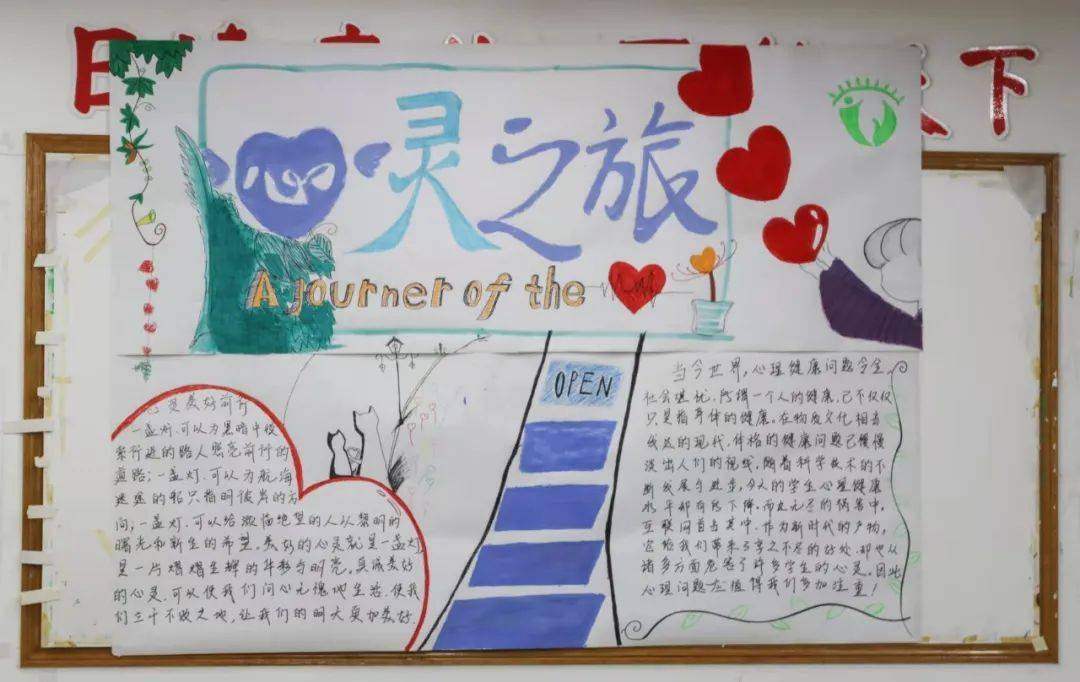 下
心灵之旅
A journer of the
OPEN
心灵美好前行
一盏灯,可以为黑暗中艰
难行进的路人照亮前行的
道路;一盏灯,可以为航海
迷途的船只指明彼岸的方
向;一盏灯,可以给濒临绝望的人以黎明的
曙光和新生的希望。美好的心灵就是一盏灯,
是一片熠熠生辉的
的心灵,可以使我们问心无愧地生活,使我
们立于不败之地,让我们的明天更加美好.
当今世界,心理健康问题令全
社会
只是指身体的健康。在物质文化相当
发达的现代,体格的健康问题已慢慢
淡出人们的视线。随着科学技术的不
断发展与进步,今天的学生心理健康
水平却有所下降,而在无尽的祸害中,
互联网首当其中。作为新时代的产物,
它给我们带来了享之不尽的好处,却也从
诸多方面危害了许多学生的心灵。因此
心理问题应值得我们多加注重!